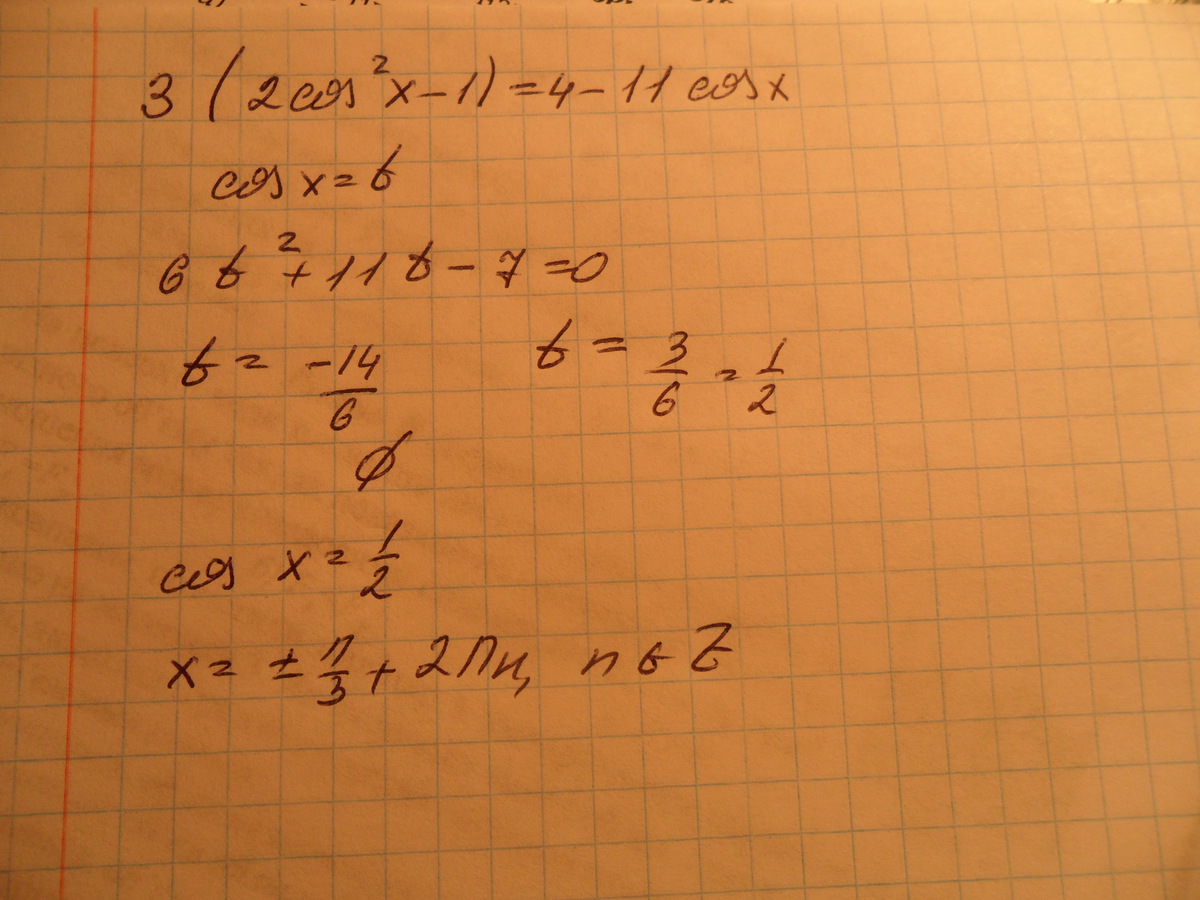 3 (2cos²x-1)=4-11 cosx
cos x=t
6 t²+11t-7=0
t= -14/6 t = 3/6 = 1/2
∅
cos x=1/2
x= ±π/3+2πn, n∈Z